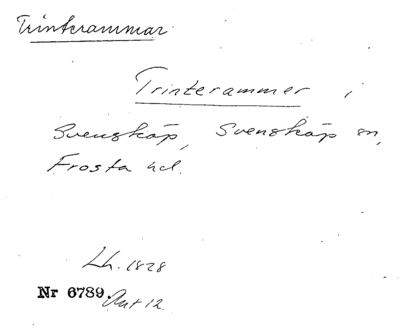 Trinterammar
Trinterammer i
Svenskåp, Svenskåp sn,
Frosta hd.
Lh. 1828
Nr 6789. Akt 12.